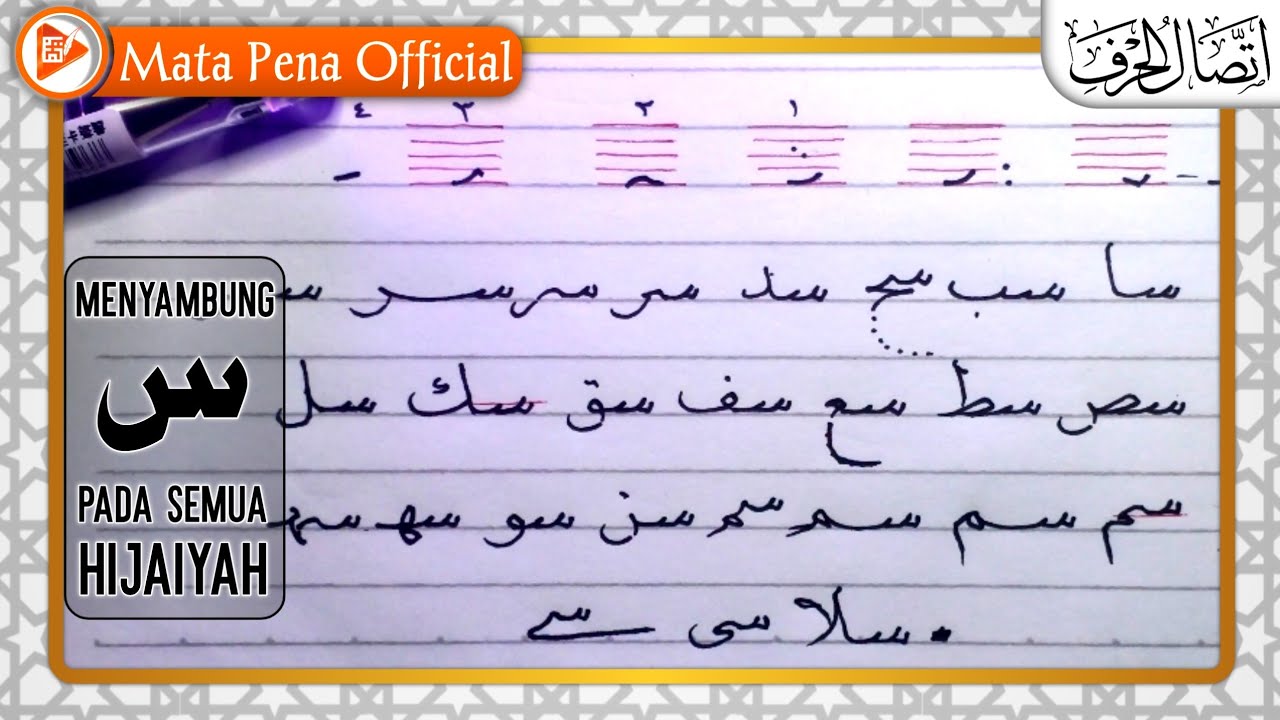 Mata Pena Official
اتصال الحرف
١ ٢ ٣ ٤
سا سب سح سد سر سر سر
MENYAMBUNG
س
PADA SEMUA
HIJAIYAH
سص سط سع سف سق سك سل
سم سم سم سم سن سو سه سه
سلا سى سے